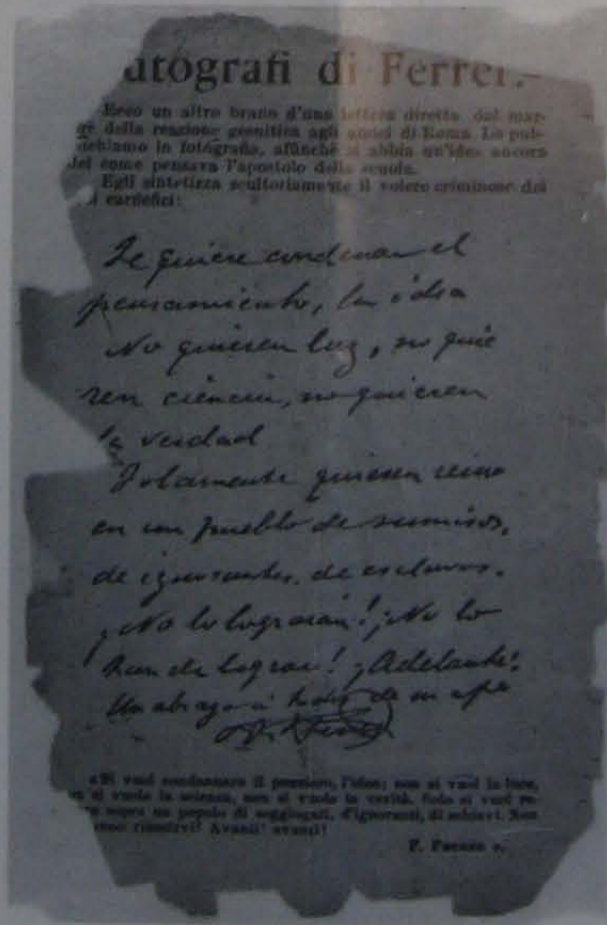 utografi di Ferrer.-
Ecco un altro brano d'una lettera diretta dal mar-
della reazione gesuitica agli amici di Roma. Lo pub-
blichiamo in fotografia, affinchè si abbia un'idea ancora
del come pensava l'apostolo della scuola.
Egli sintetizza scultoriamente il volere criminoso dei
carnefici:
Se quiere condenar el
pensamiento, la idea
No quieren luz, no quie
ren ciencia, no quieren
la verdad
Solamente quieren
en un pueblo de sumisos,
de ignorantes, de esclavos.
¡No lo lograrán! ¡No lo
han de lograr! ¡Adelante!
Un abrazo á todos de su
«Si vuol condannare il pensiero, l'idea; non si vuol la luce,
si vuole la scienza, non si vuole la verità. Solo si vuol re-
sopra un popolo di soggiogati, d'ignoranti, di schiavi. Non
riuscirvi! Avanti! avanti!
F.